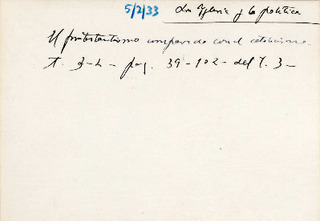 5/2/33 La Iglesia y la política
El protestantismo comparado con el catolicismo.
T. 3-2- pag. 39-102- del T. 3-